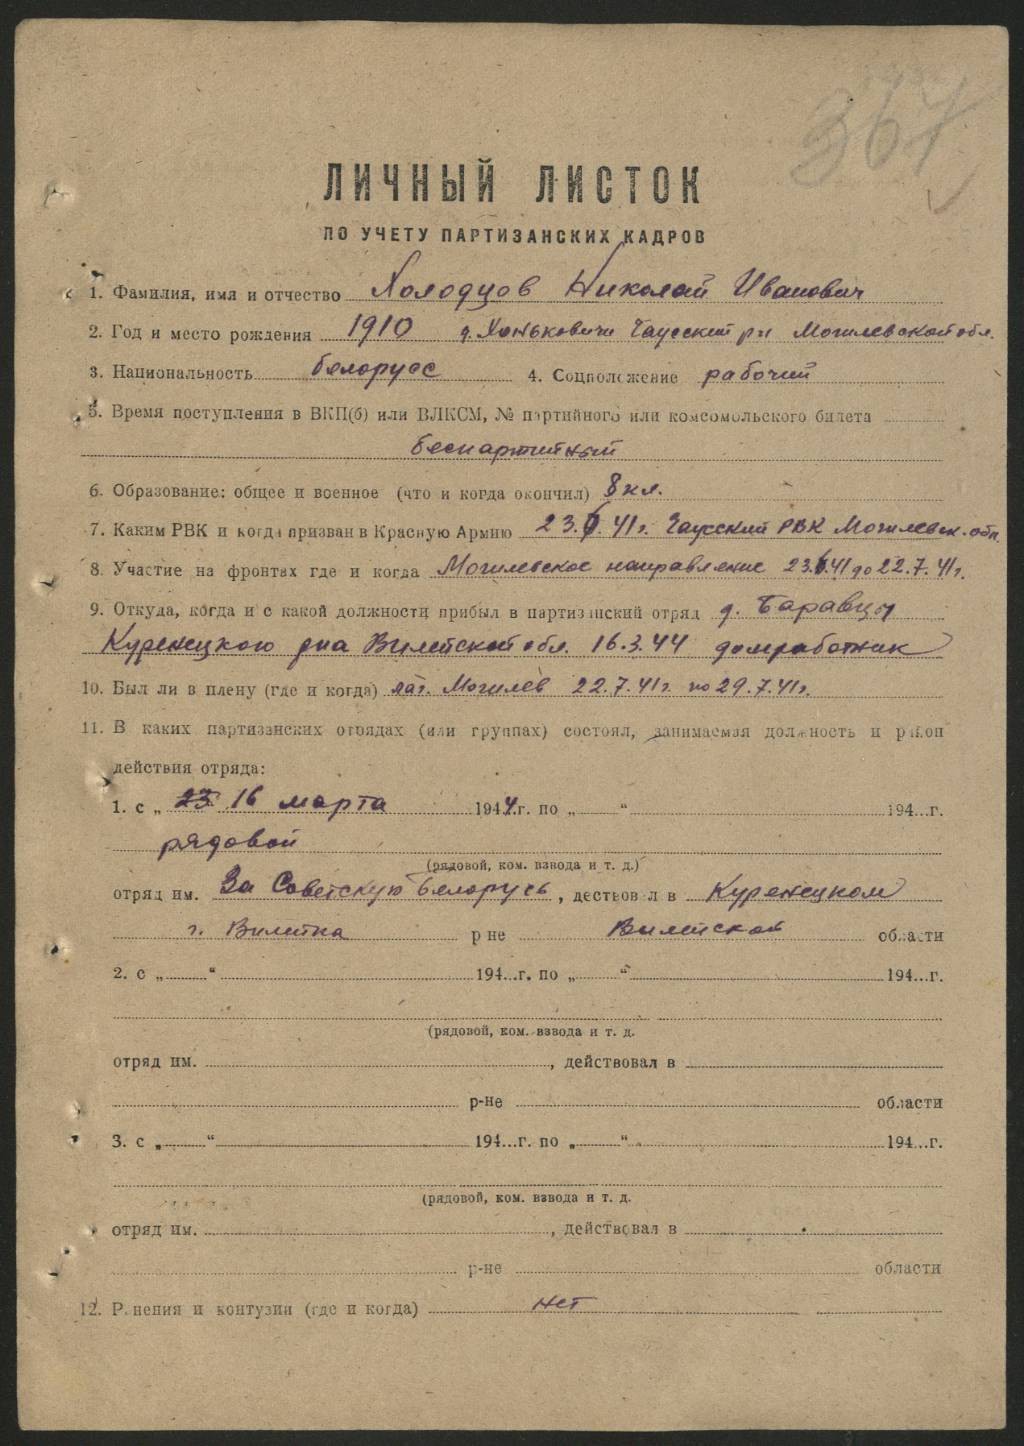 367
ЛИЧНЫЙ ЛИСТОК
ПО УЧЕТУ ПАРТИЗАНСКИХ КАДРОВ
1. Фамилия, имя и отчество Холодцов Николай Иванович
2. Год и место рождения 1910 д. Ханьковичи Чаусский рн Могилевской обл.
3. Национальность белорусс 4. Соцположение рабочий
5. Время поступления в ВКП(б) или ВЛКСМ, № партийного или комсомольского билета
беспартийный
6. Образование: общее и военное (что и когда окончил) 8 кл.
7. Каким РВК и когда призван в Красную Армию 23.6.41г. Чаусский РВК Могилевск. обл.
8. Участие на фронтах где и когда Могилевское направление 23.6.41 до 22.7.41г.
9. Откуда, когда и с какой должности прибыл в партизанский отряд д. Баравцы
Куренецкого рна Вилейской обл. 16.3.44 домработник
10. Был ли в плену (где и когда) лаг. Могилев 22.7.41г. по 29.7.41г.
11. В каких партизанских отрядах (или группах) состоял, занимаемая должность и район
действия отряда:
1. с „ 23 16 марта 1944.г. по „ “ 194...г.
рядовой
(рядовой, ком. взвода и т. д.)
отряд им. За Советскую Белорусь, действовал в Куренецком
г. Вилейка р-не Вилейской области
2. с „ “ 194...г. по „ “ 194...г.
(рядовой, ком. взвода и т. д.
отряд им. , действовал в
р-не области
3. с „ “ 194...г. по „ “ 194...г.
(рядовой, ком. взвода и т. д.
отряд им. , действовал в
р-не области
12. Ранения и контузии (где и когда) нет